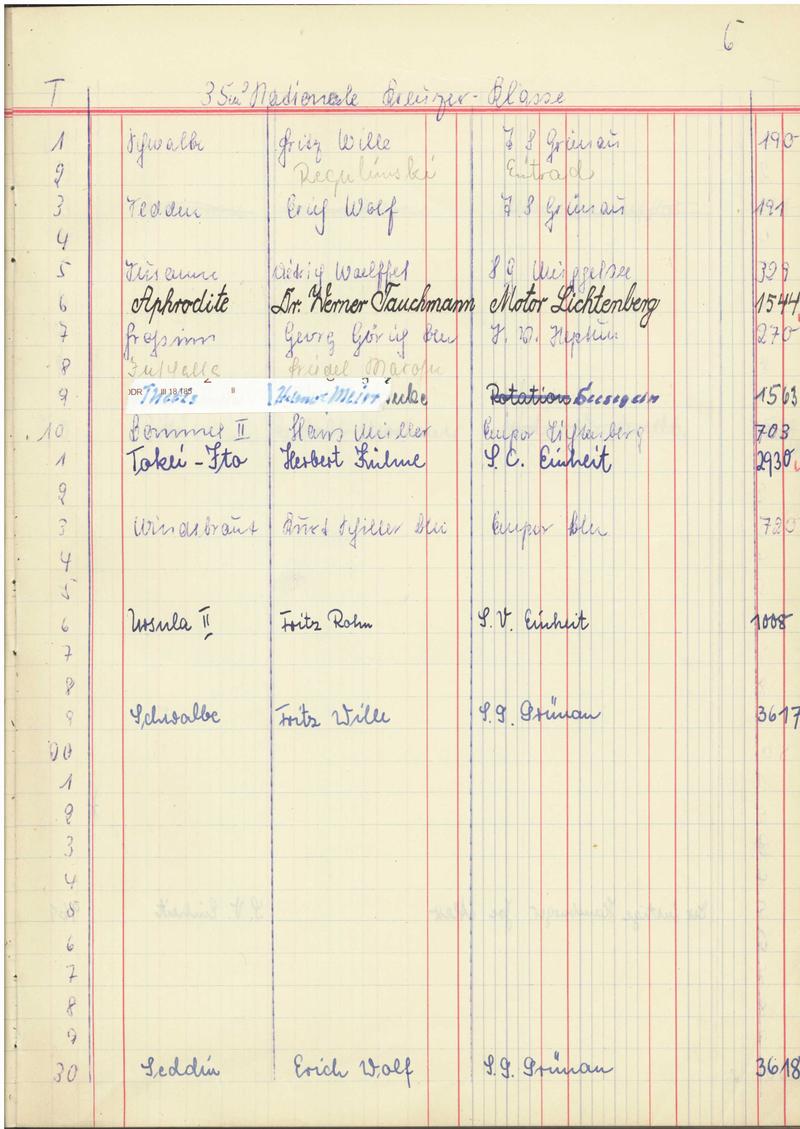 6
T 35m² Nationale Kreuzer-Klasse
1 Schwalbe Fritz Wille Z S Grünau 190
2 Regulinski Eintrach
3 Seddin Erich Wolf Z S Grünau 191
4
5 Susanne Woelffel S G Müggelsee 329
6 Aphrodite Dr. Werner Tauchmann Motor Lichtenberg 1544
7 Georg Görig Bln 270
8 Friedel
9 DDR III 18 185 II Thetis Meier Rotation 1563
10 Bommel II Hans Müller Empor Lichtenberg 703
1 Tokei-Ito Herbert Kühne S.C. Einheit 2930
2
3 Windsbraut Kurt Schiller Bln Empor Bln 720
4
5
6 Ursula II Fritz Rohn S.V. Einheit 1008
7
8
9 Schwalbe Fritz Wille S.G. Grünau 3617
20
1
2
3
4
5
6
7
8
9
30 Seddin Erich Wolf S.G. Grünau 3618